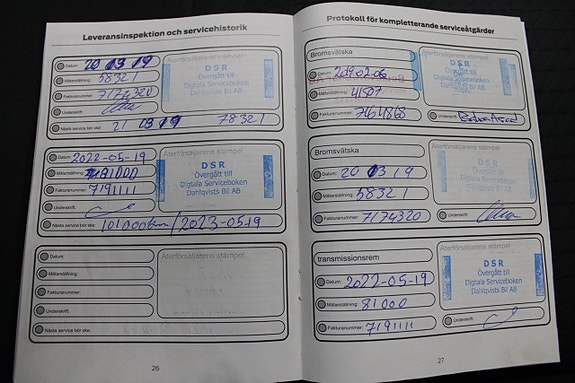 Leveransinspektion och servicehistorik
Återförsäljarens stämpel
Datum: 20 03 19
Mätarställning: 58321
Fakturanummer: 7174320
Underskrift:
Nästa service bör ske: 21 03 19 78321
DSR
Övergått till
Digtala Serviceboken
Dahlqvists Bil AB
Återförsäljarens stämpel
Datum: 2022-05-19
Mätarställning: 81000
Fakturanummer: 7191111
Underskrift:
Nästa service bör ske: 101000km/2023-05-19
DSR
Övergått till
Digtala Serviceboken
Dahlqvists Bil AB
Återförsäljarens stämpel
Datum:
Mätarställning:
Fakturanummer:
Underskrift:
Nästa service bör ske:
26
Protokoll för kompletterande serviceåtgärder
Bromsvätska
Återförsäljarens stämpel
Mätarställning: 41507
Fakturanummer: 7164868
DSR
Övergått till
Digtala Serviceboken
Dahlqvists Bil AB
Underskrift:
Bromsvätska
Återförsäljarens stämpel
Datum: 20 03 19
Mätarställning: 58321
Fakturanummer: 7174320
DSR
Övergått till
Digtala Serviceboken
Dahlqvists Bil AB
Underskrift:
transmissionsrem
Återförsäljarens stämpel
Datum: 2022-05-19
Mätarställning: 81000
Fakturanummer: 7191111
DSR
Övergått till
Digtala Serviceboken
Dahlqvists Bil AB
Underskrift:
27